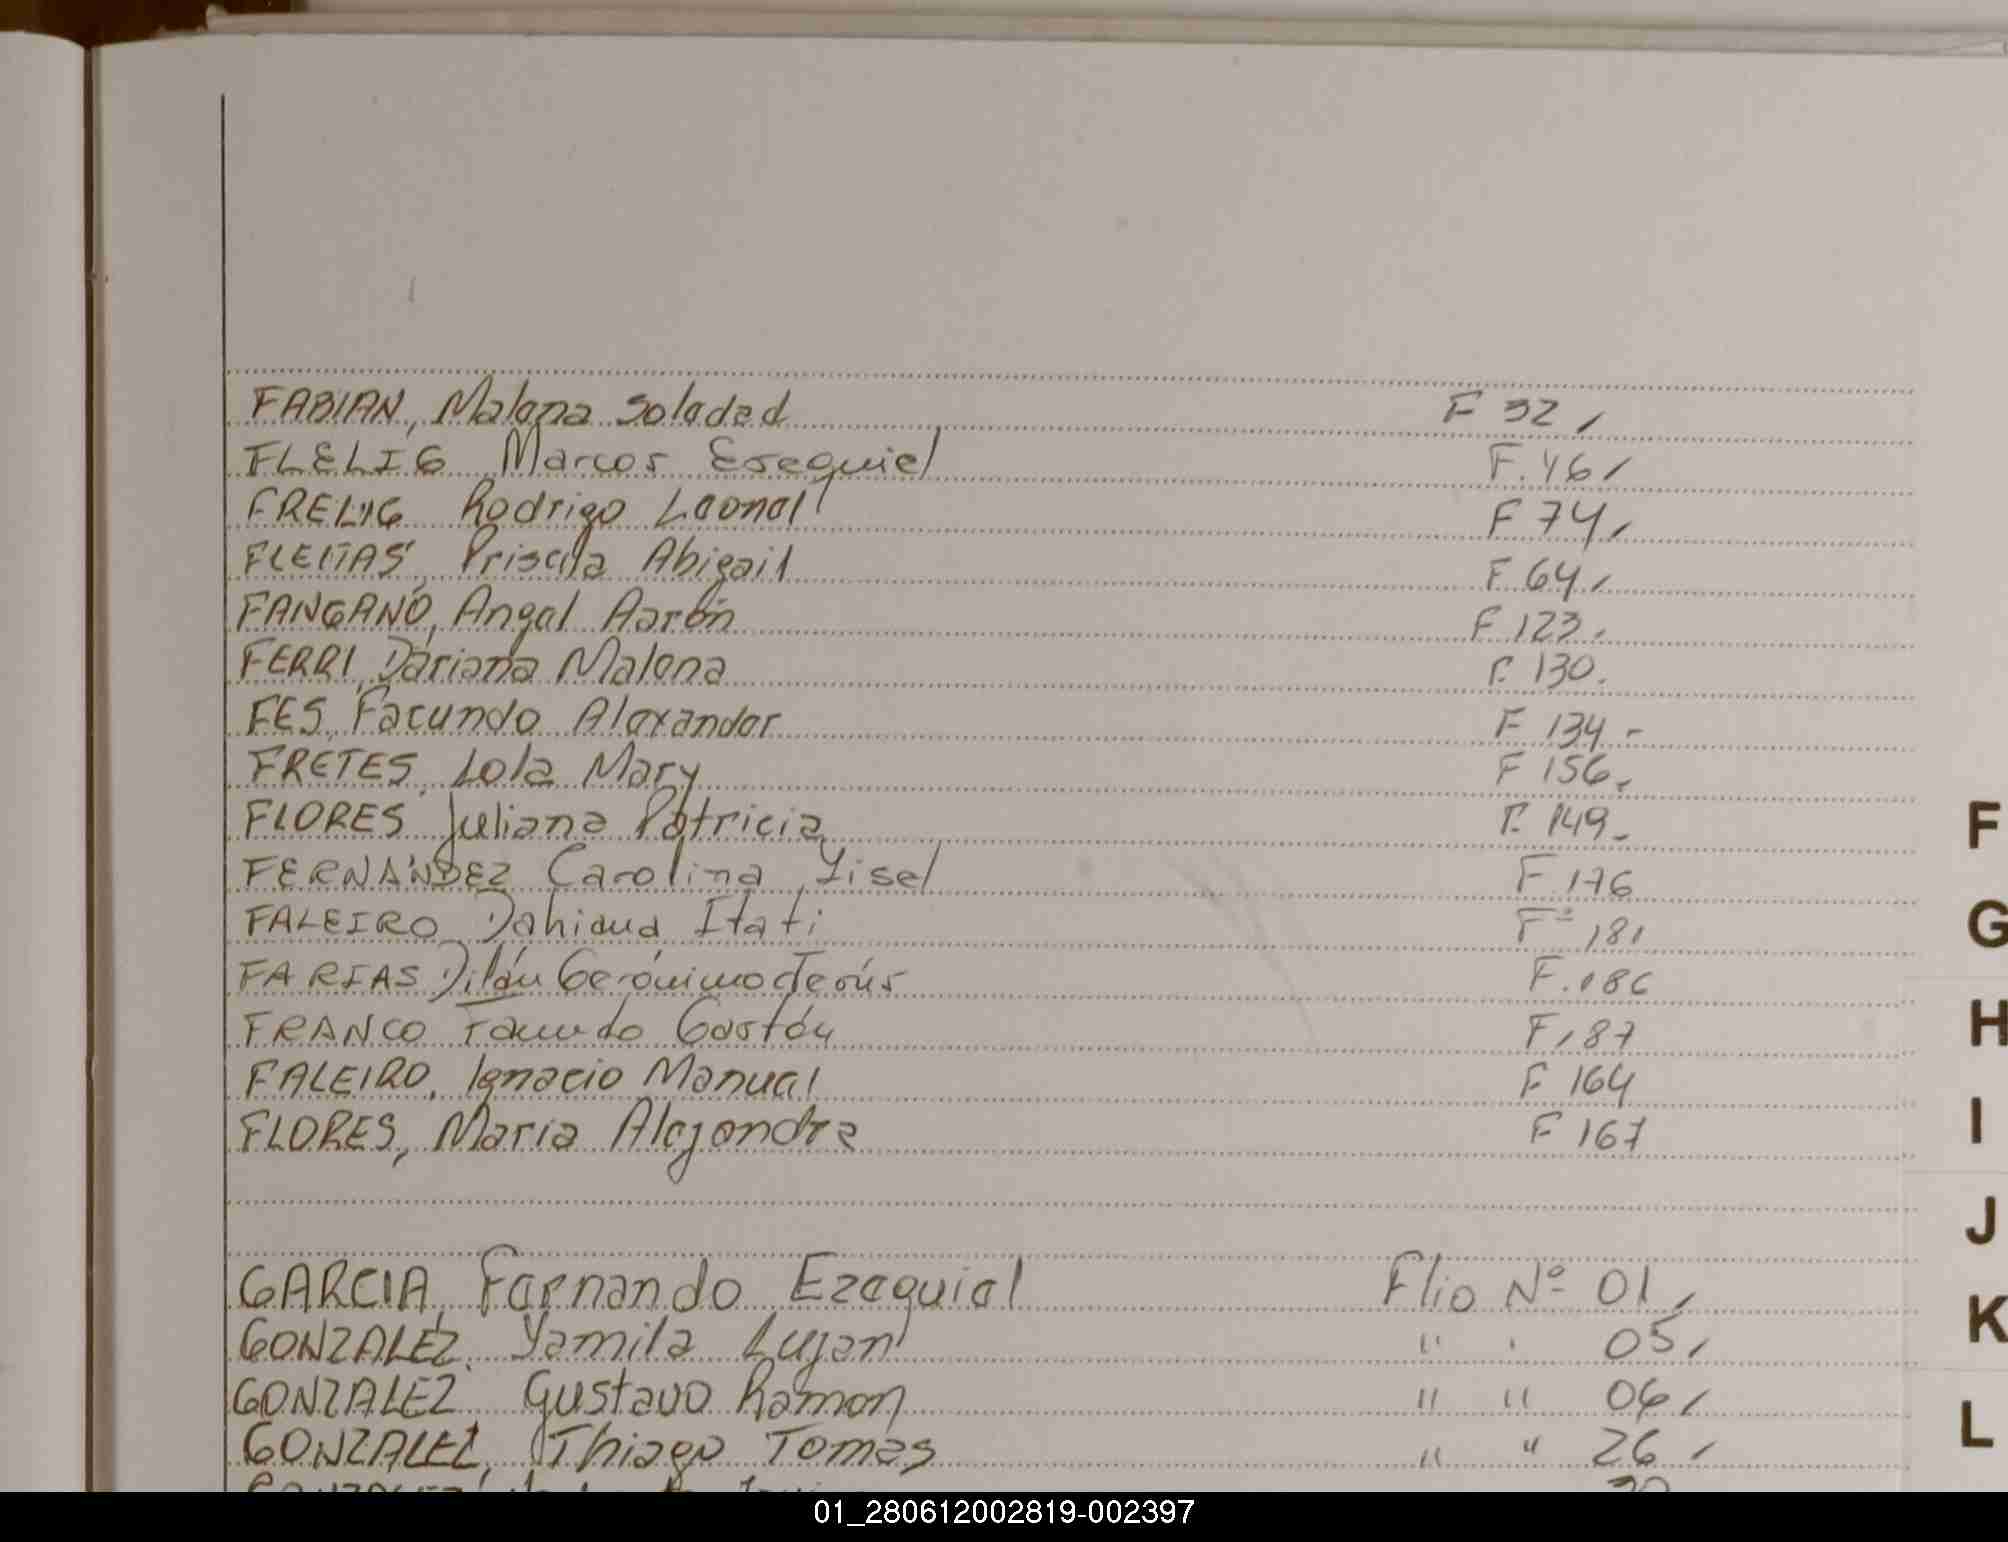 FABIAN, Malena Soledad F 32,
FLELIG Marcos Esequiel F. 46,
FRELIG Rodrigo Leonel F 74,
FLEITAS, Priscila Abigail F 64,
FANGANO, Angel Aarón F 123.
FERRI, Dariana Malena F. 130.
FES, Facundo Alexander F 134 -
FRETES, Lola Mary F 156.
FLORES Juliana Patricia F. 149.
FERNÁNDEZ Carolina Yisel F 176
FALEIRO Dahiana Itati Fº 181
FARIAS Dilán Gerónimo Jesús F. 186
FRANCO Facundo Gastón F 187
FALEIRO, Ignacio Manuel F 164
FLORES, Maria Alejandra F 167
GARCIA, Fernando Ezequiel Flio Nº 01,
GONZALEZ, Yamila Lujan " " 05,
GONZALEZ Gustavo Ramon " " 06,
GONZALEZ, Thiago Tomas " " 26,
F
G
H
I
J
K
L
01_280612002819-002397